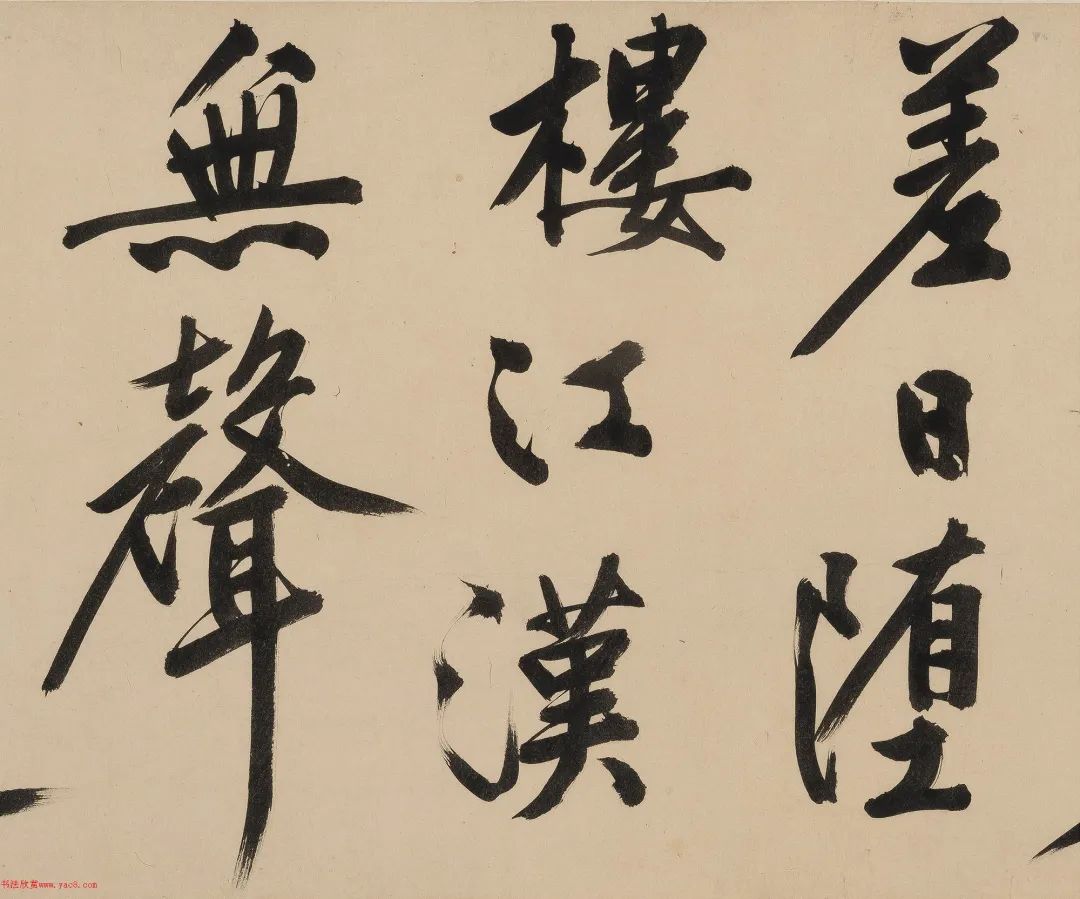 差日堕
樓江漢
無聲
书法欣赏www.yac8.com